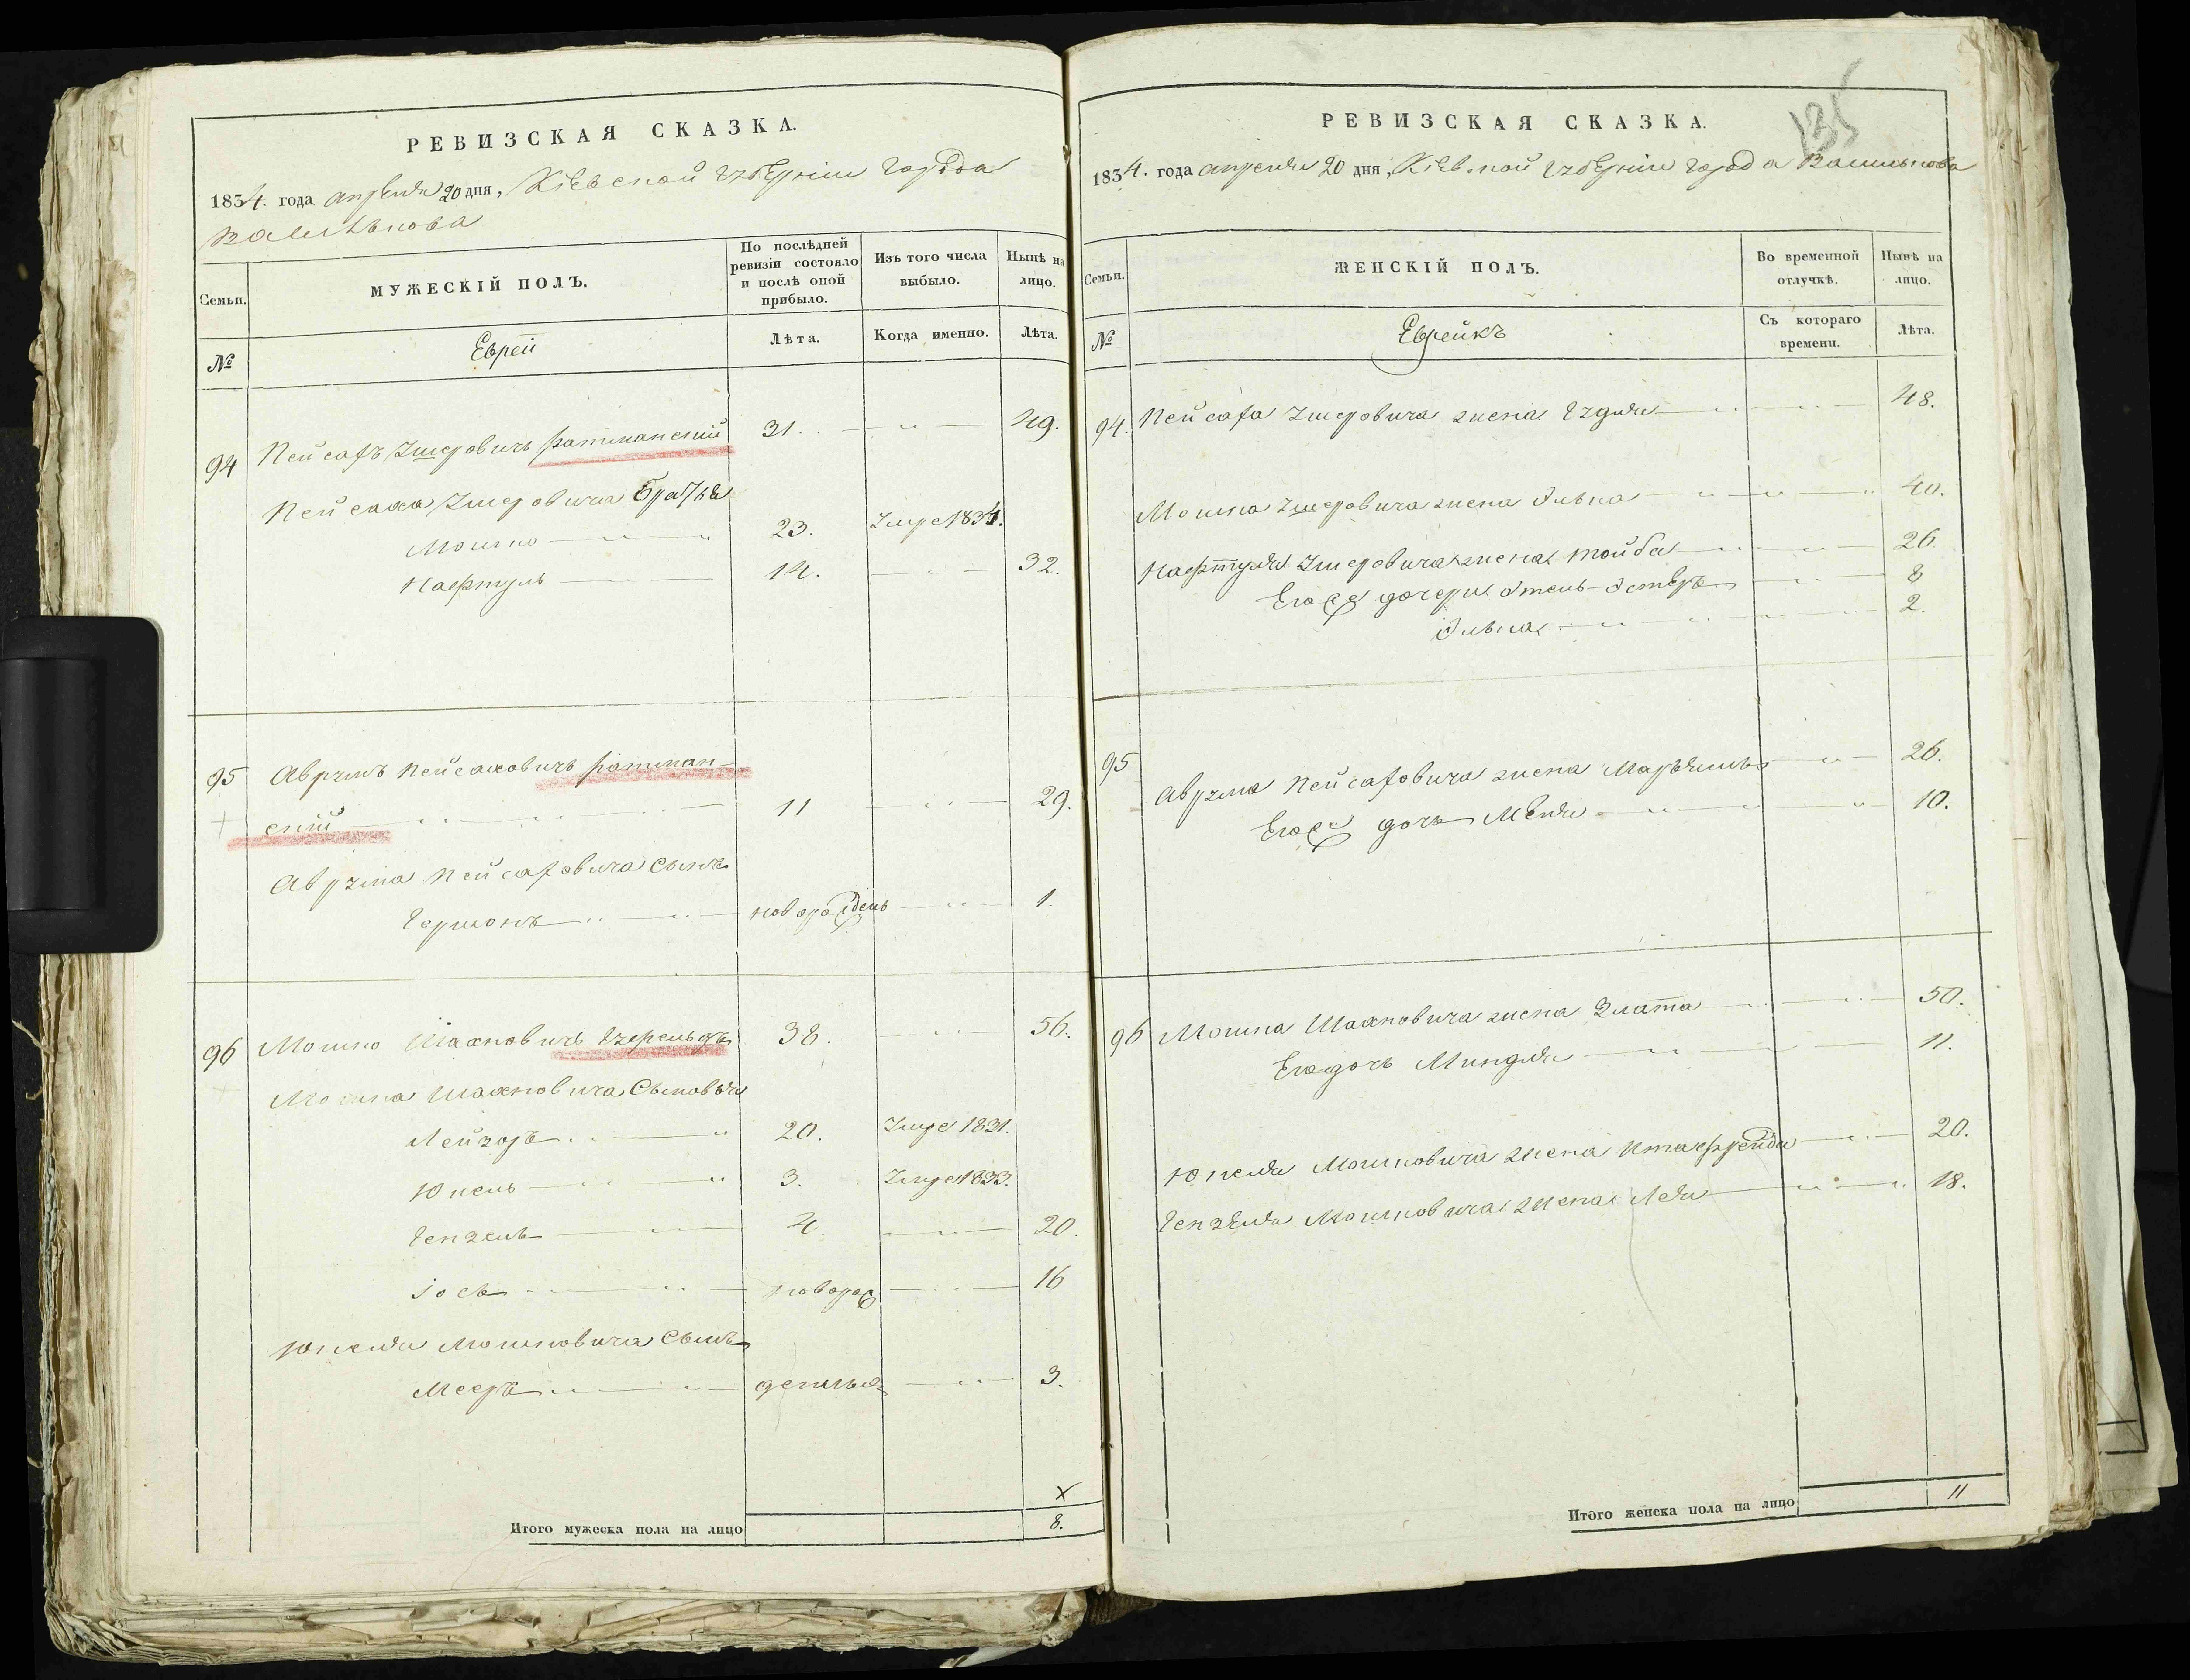 РЕВИЗСКАЯ СКАЗКА.
1834. года апреля 20 дня, Кіевской губерніи города
Василькова
Семьи.
МУЖЕСКІЙ ПОЛЪ.
По послѣдней ревизіи состояло и послѣ оной прибыло.
Изъ того числа выбыло.
Нынѣ на лицо.
№
Еврей
Лѣта.
Когда именно.
Лѣта.
94 Пейсахъ Умеровичъ 31. 49.
Пейсаха Умеровича братья
Мошко 23. Умре 1834.
Нафтуль 14. 32.
95 Аврумъ Пейсаховичъ Ратман-
скій 11 29.
Аврума Пейсаховича сынъ
Гершонъ новорожденъ 1.
96 Мошко Шахновичъ 38. 56.
Мошка Шахновича сыновья
Лейзоръ 20. Умре 1831.
Юкель 3. Умре 1833.
Гензель 2. 20.
Іось новорож 16
Юкеля Мошковича сынъ
Мееръ 3.
Х
Итого мужеска пола на лицо 8.
135
РЕВИЗСКАЯ СКАЗКА.
1834. года апреля 20 дня, Кіевской губерніи города Василькова
Семьи.
ЖЕНСКІЙ ПОЛЪ.
Во временной отлучкѣ.
Нынѣ на лицо.
№
Еврейкъ
Съ котораго времени.
Лѣта.
94. Пейсаха Умеровича жена Гудля 48.
Мошка Умеровича жена Элька 40.
Нафтуля Умеровича жена Тойба 26.
Егоже дочери Этель-Эстеръ 8
Элька 2.
95 Аврума Пейсаховича жена Марьямъ 26.
Егоже дочь Меля 10.
96 Мошка Шахновича жена Злата 50.
Его дочь Миндля 11.
Юкеля Мошковича жена Итафрейда 20.
Гензеля Мошковича жена Лея 18.
Итого женска пола на лицо 11